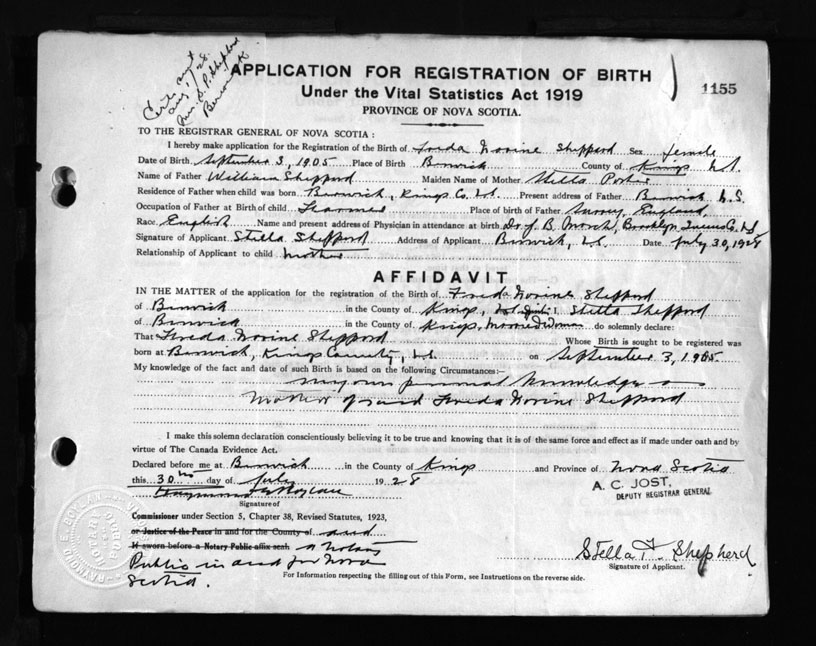 Certs sent
Aug 1/28.
Mrs. S. P. Shepherd
Berwick
APPLICATION FOR REGISTRATION OF BIRTH
Under the Vital Statistics Act 1919
PROVINCE OF NOVA SCOTIA.
1155
TO THE REGISTRAR GENERAL OF NOVA SCOTIA:
I hereby make application for the Registration of the Birth of Freda Norine Shepperd Sex female
Date of Birth September 3, 1905 Place of Birth Berwick County of Kings N.S.
Name of Father William Shepperd Maiden Name of Mother Stella Porter
Residence of Father when child was born Berwick, Kings Co. N.S. Present address of Father Berwick N.S.
Occupation of Father at Birth of child Farmer Place of birth of Father Surrey, England,
Race English Name and present address of Physician in attendance at birth Dr. J. B. Brooklyn Queens Co. N.S.
Signature of Applicant Stella Shepperd Address of Applicant Berwick, N.S. Date July 30, 1928
Relationship of Applicant to child mother
AFFIDAVIT
IN THE MATTER of the application for the registration of the Birth of Freda Norine Shepperd
of Berwick in the County of Kings, I, Stella Shepperd
of Berwick in the County of Kings, Married Woman do solemnly declare:
That Freda Norine Shepperd Whose Birth is sought to be registered was
born at Berwick, Kings County, N.S. on September 3, 1905.
My knowledge of the fact and date of such Birth is based on the following Circumstances:—
my own personal knowledge as
mother of said Freda Norine Shepperd
I make this solemn declaration conscientiously believing it to be true and knowing that it is of the same force and effect as if made under oath and by
virtue of The Canada Evidence Act.
Declared before me at Berwick in the County of Kings and Province of Nova Scotia
this 30th day of July 1928
A. C. JOST,
DEPUTY REGISTRAR GENERAL
Signature of
Commissioner under Section 5, Chapter 38, Revised Statutes, 1923,
or Justice of the Peace in and for the County of and
If sworn before a Notary Public affix seal a Notary
Public in and for Nova
Scotia.
Stella F. Shepherd
Signature of Applicant.
For Information respecting the filling out of this Form, see Instructions on the reverse side.